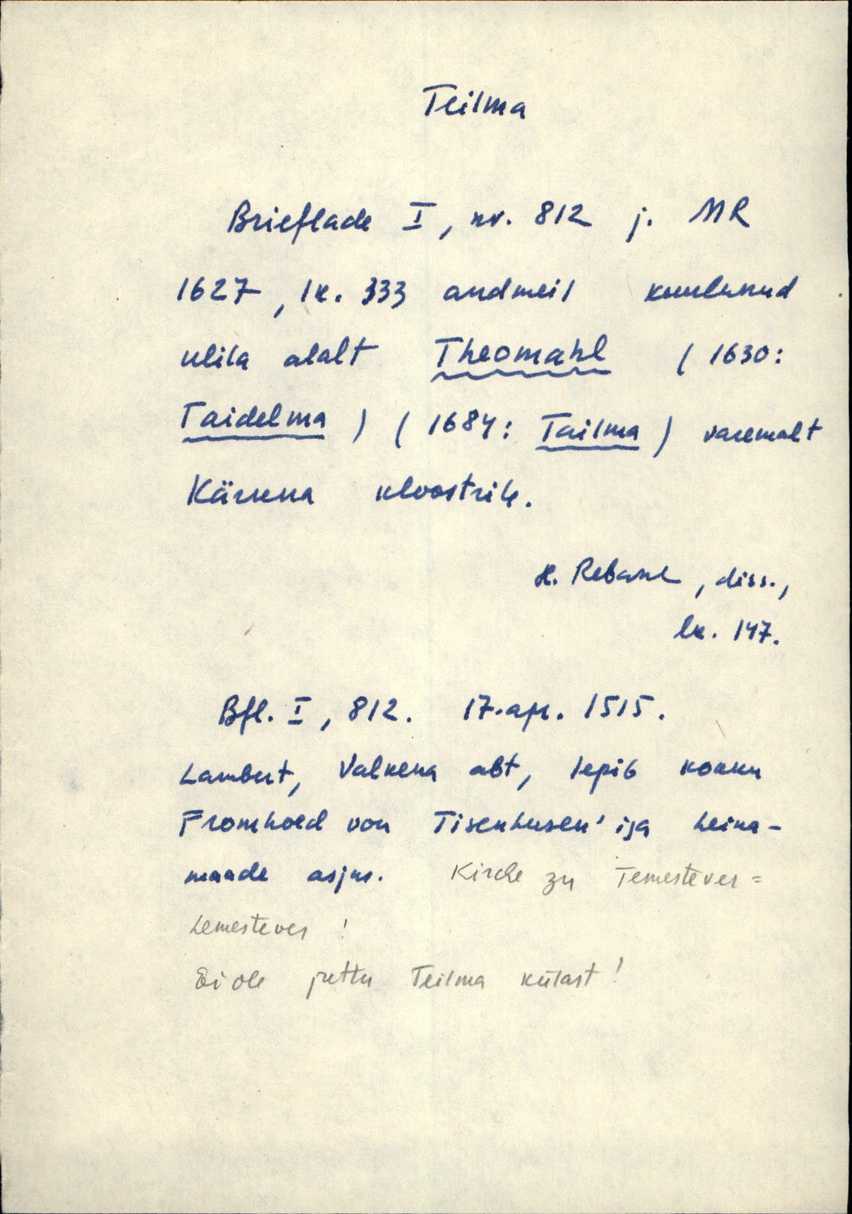 Teilma
Brieflade I, nr. 812 j. MR
1627, lk. 333 andmeil kuulunud
ulila alalt Theomahl (1630:
Taidelma) (1684: Tailma) varemalt
Kärkna kloostrile.
H. Rebane, diss.,
lk. 147.
Bfl. I, 812. 17. apr. 1515.
Lambert, Valkena abt, lepib kokku
Fromhold von Tisenhusen'iga heina-
maade asjus. Kirche zu Temestever =
Lemestever!
Ei ole juttu Teilma külast!